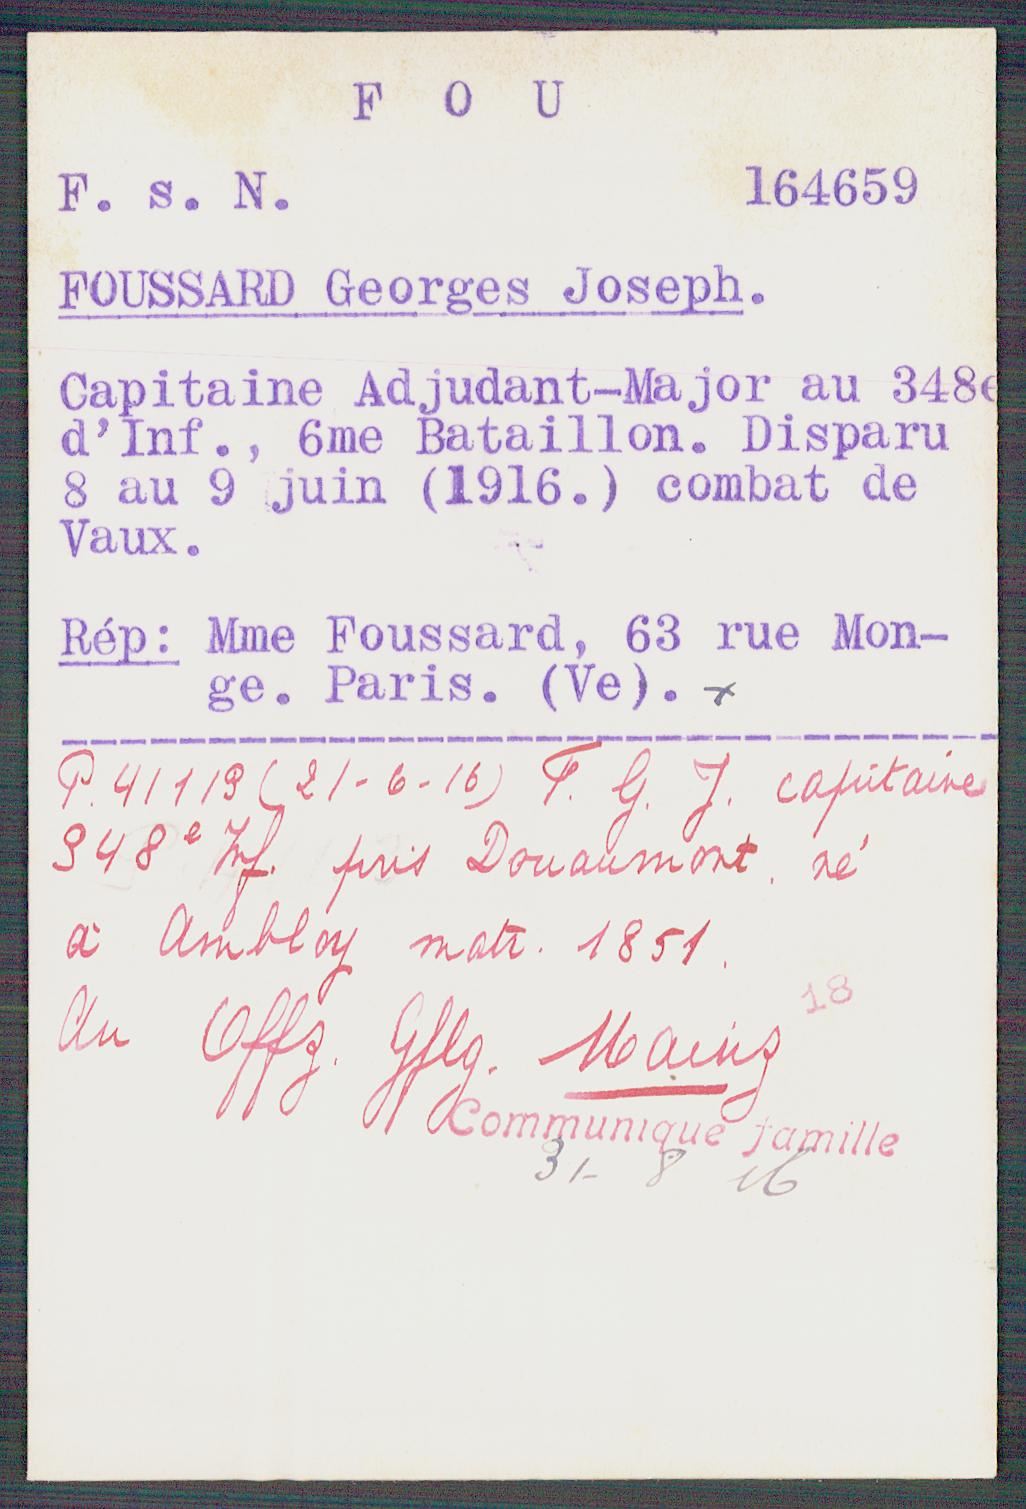 F O U
F. s. N. 164659
FOUSSARD Georges Joseph.
Capitaine Adjudant-Major au 348e
d'Inf., 6me Bataillon. Disparu
8 au 9 juin (1916.) combat de
Vaux.
Rép: Mme Foussard, 63 rue Mon-
ge. Paris. (Ve). x
P. 41119 (21-6-16) F. G. J. capitaine
348e Inf. pris Douaumont. né
à Ambloy matr. 1851.
18
Au Offz. Gflg. Mainz
Communiqué famille
31- 8 16